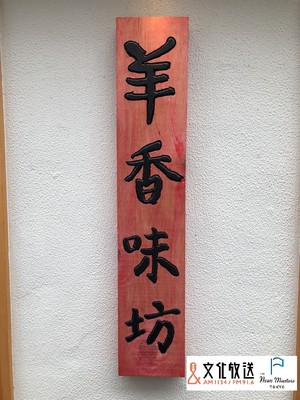 羊香味坊
文化放送
AM1134/FM91.6
THE
News Masters
TOKYO